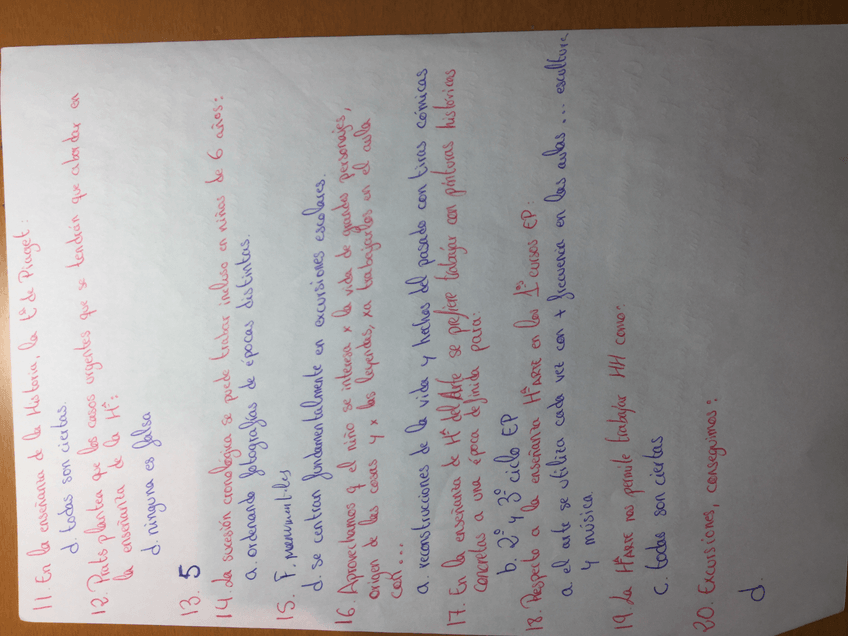 11. En la enseñanza de la Historia, la tª de Piaget:
d. todas son ciertas.
12. Prats plantea que las cosas urgentes que se tendrán que abordar en
la enseñanza de la Hª:
d. ninguna es falsa
13. 5
14. La sucesión cronológica se puede trabar incluso en niños de 6 años:
a. ordenando fotografías de épocas distintas.
15. F. monument-les
d. se centran fundamentalmente en excursiones escolares.
16. Aprovechamos q el niño se interesa x la vida de grandes personajes,
origen de las cosas y x las leyendas, xa trabajarlos en el aula
con...
a. reconstrucciones de la vida y hechos del pasado con tiras cómicas
17. En la enseñanza de Hª del Arte se prefiere trabajar con pinturas históricas
concretas a una época definida para:
b. 2º y 3º ciclo EP
18. Respecto a la enseñanza HªARTE en los 1ºs cursos EP:
a. el arte se utiliza cada vez con + frecuencia en las aulas ... escultura
y música
19. La HªARTE nos permite trabajar HH como:
c. todas son ciertas
20. Excursiones, conseguimos:
d.